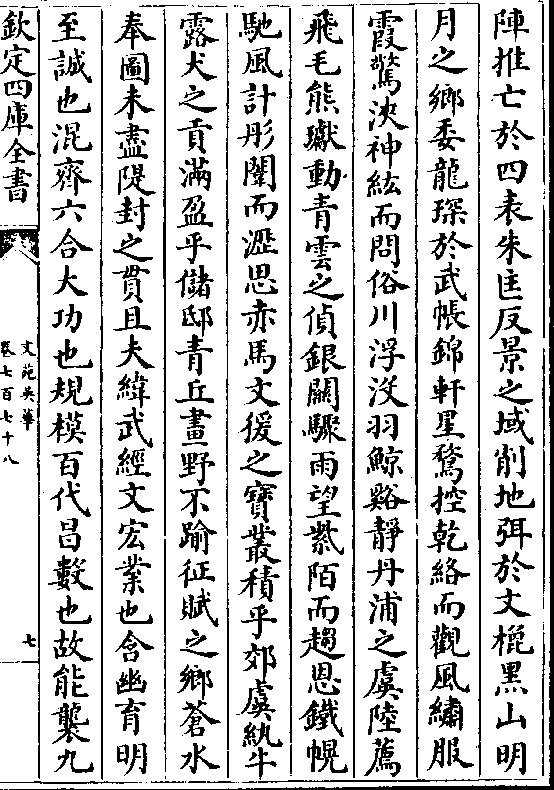 陣推亡於四表朱匡反景之域削地弭於文檻黑山明
月之鄉委龍琛於武帳錦軒星騖控乾絡而觀風繡服
霞驚浹神紘而問俗川浮没羽鯨谿靜丹浦之虞陸薦
飛毛熊巘動青雲之偵銀闕驟雨望紫陌而趨恩鐵幌
馳風計彤闈而澀思赤馬文𫛛之寶叢積乎郊虞紈牛
露犬之貢滿盈乎儲邸青丘畫野不踰征賦之鄉蒼水
奉圖未盡隄封之貫且夫緯武經文宏業也含幽育明
至誠也混齊六合大功也規模百代昌數也故能襲九
欽定四庫全書
文苑英華
卷七百七十八
七